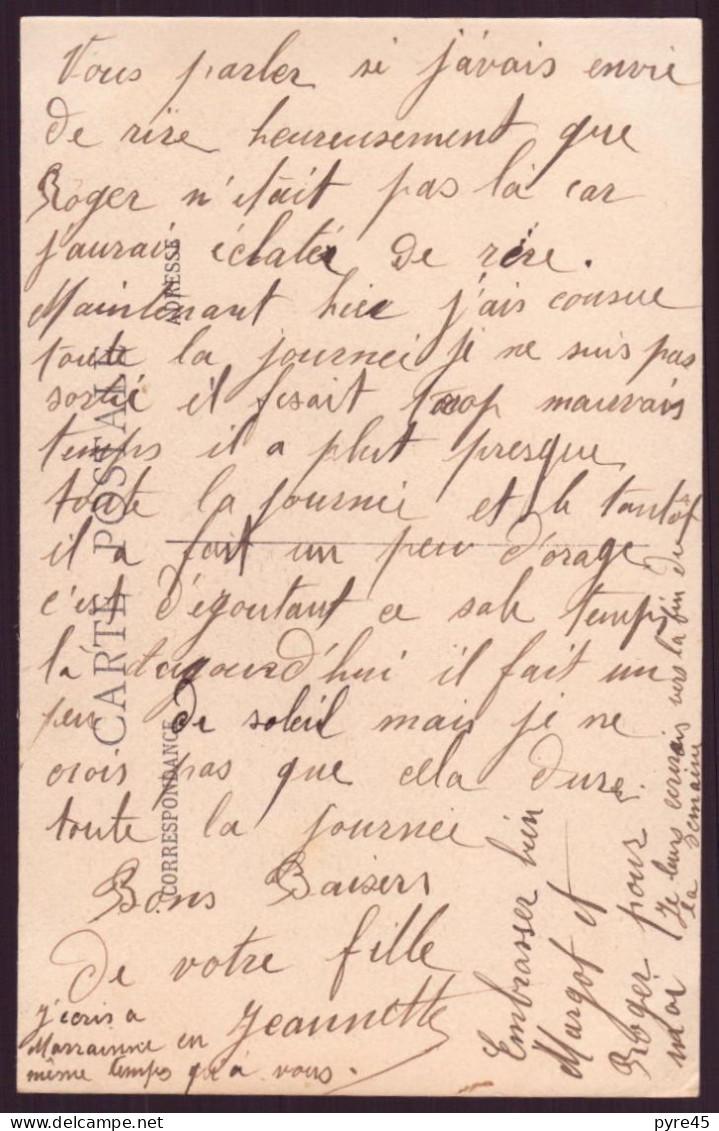 Vous parler si j'avais envie
de rire heureusement que
Roger n'était pas là car
j'aurais éclatée de rire.
Maintenant hier j'ais cousue
toute la journeé je ne suis pas
sortie il fesait trop mauvais
temps il a plut presque
toute la journeé et le tantôt
il a fait un peu d'orage
c'est d'égoutant ce sale temps
là aujourd'hui il fait un
peu de soleil mais je ne
crois pas que cela dure
toute la journeé
Bons Baisers
de votre fille
Jeannette
j'ecris a
Marrainne en
même temps qu'à vous.
Embrasser bien
Margot et
Roger pour
moi
Je leurs ecrirais vers la fin de
la semaine
CARTE POSTALE
CORRESPONDANCE
ADRESSE
pyre45